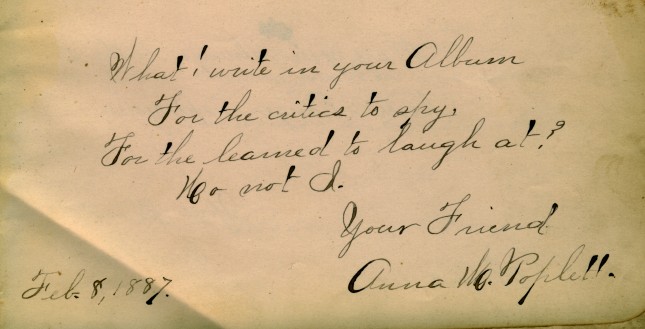 What! write in your Album
For the critics to spy,
For the learned to laugh at?
No not I.
Your Friend
Anna M. Poplett.
Feb. 8, 1887.